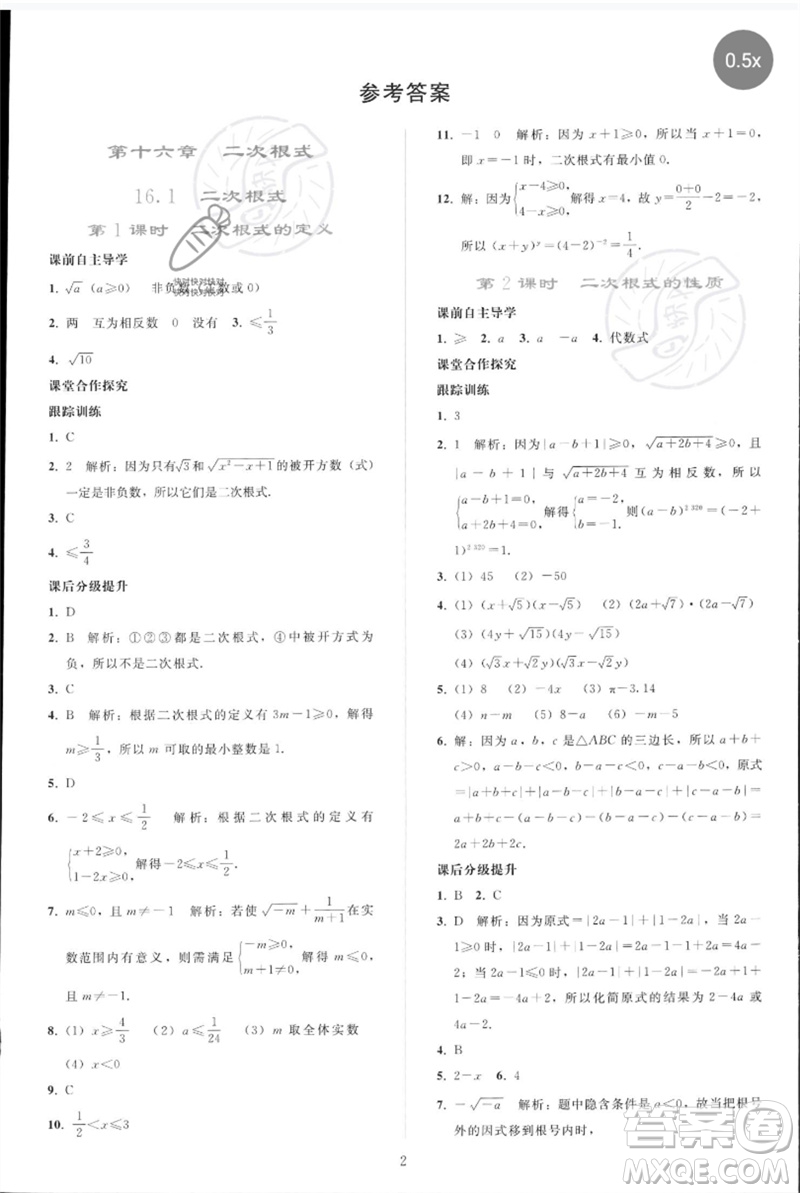 0.5x
参考答案
第十六章 二次根式
16.1 二次根式
第1课时 二次根式的定义
课前自主导学
1. √a (a≥0) 非负数(正数或0)
快对快对快对
快对快对快对
2. 两 互为相反数 0 没有 3. ≤1/3
4. √10
课堂合作探究
跟踪训练
1. C
2. 2 解析:因为只有√3和√(x²-x+1)的被开方数(式)
一定是非负数,所以它们是二次根式.
3. C
4. ≤3/4
课后分级提升
1. D
2. B 解析:①②③都是二次根式,④的被开方式为
负,所以不是二次根式.
3. C
4. B 解析:根据二次根式的定义有3m-1≥0,解得
m≥1/3,所以m可取的最小整数是1.
5. D
6. -2≤x≤1/2 解析:根据二次根式的定义有
{x+2≥0, 1-2x≥0, 解得-2≤x≤1/2.
7. m≤0,且m≠-1 解析:若使√(-m)+1/(m+1)在实
数范围内有意义,则需满足{-m≥0, m+1≠0, 解得m≤0,
且m≠-1.
8. (1)x≥4/3 (2)a≤1/24 (3)m取全体实数
(4)x<0
9. C
10. 1/2<x≤3
11. -1 0 解析:因为x+1≥0,所以当x+1=0,
即x=-1时,二次根式有最小值0.
12. 解:因为{x-4≥0, 4-x≥0, 解得x=4,故y=(0+0)/2-2=-2,
所以(x+y)^y=(4-2)^-2=1/4.
第2课时 二次根式的性质
课前自主导学
1. ≥ 2. a 3. a -a 4. 代数式
课堂合作探究
跟踪训练
1. 3
2. 1 解析:因为|a-b+1|≥0,√(a+2b+4)≥0,且
|a-b+1|与√(a+2b+4)互为相反数,所以
{a-b+1=0, a+2b+4=0, 解得{a=-2, b=-1, 则(a-b)^2 320=(-2+
1)^2 320=1.
3. (1)45 (2)-50
4. (1)(x+√5)(x-√5) (2)(2a+√7)·(2a-√7)
(3)(4y+√15)(4y-√15)
(4)(√3x+√2y)(√3x-√2y)
5. (1)8 (2)-4x (3)π-3.14
(4)n-m (5)-m-5
6. 解:因为a,b,c是△ABC的三边长,所以a+b+
c>0,a-b-c<0,b-a-c<0,c-b-a<0,原式
=|a+b+c|+|a-b-c|+|b-a-c|-|c-b-a|=
a+b+c-a+b+c-b+a+c+c-b-a=
2a+2b+2c.
课后分级提升
1. B 2. C
3. D 解析:因为原式=|2a-1|+|1-2a|,当2a-
1≥0时,|2a-1|+|1-2a|=2a-1+2a-1=4a-
2;当2a-1≤0时,|2a-1|+|1-2a|=-2a+1+
1-2a=-4a+2,所以化简原式的结果为2-4a或
4a-2.
4. B
5. 2-x 6. 4
7. -√(-a) 解析:题中隐含条件是a<0,故当把根号
外的因式移到根号内时,
2
答案圈
MXQE.COM